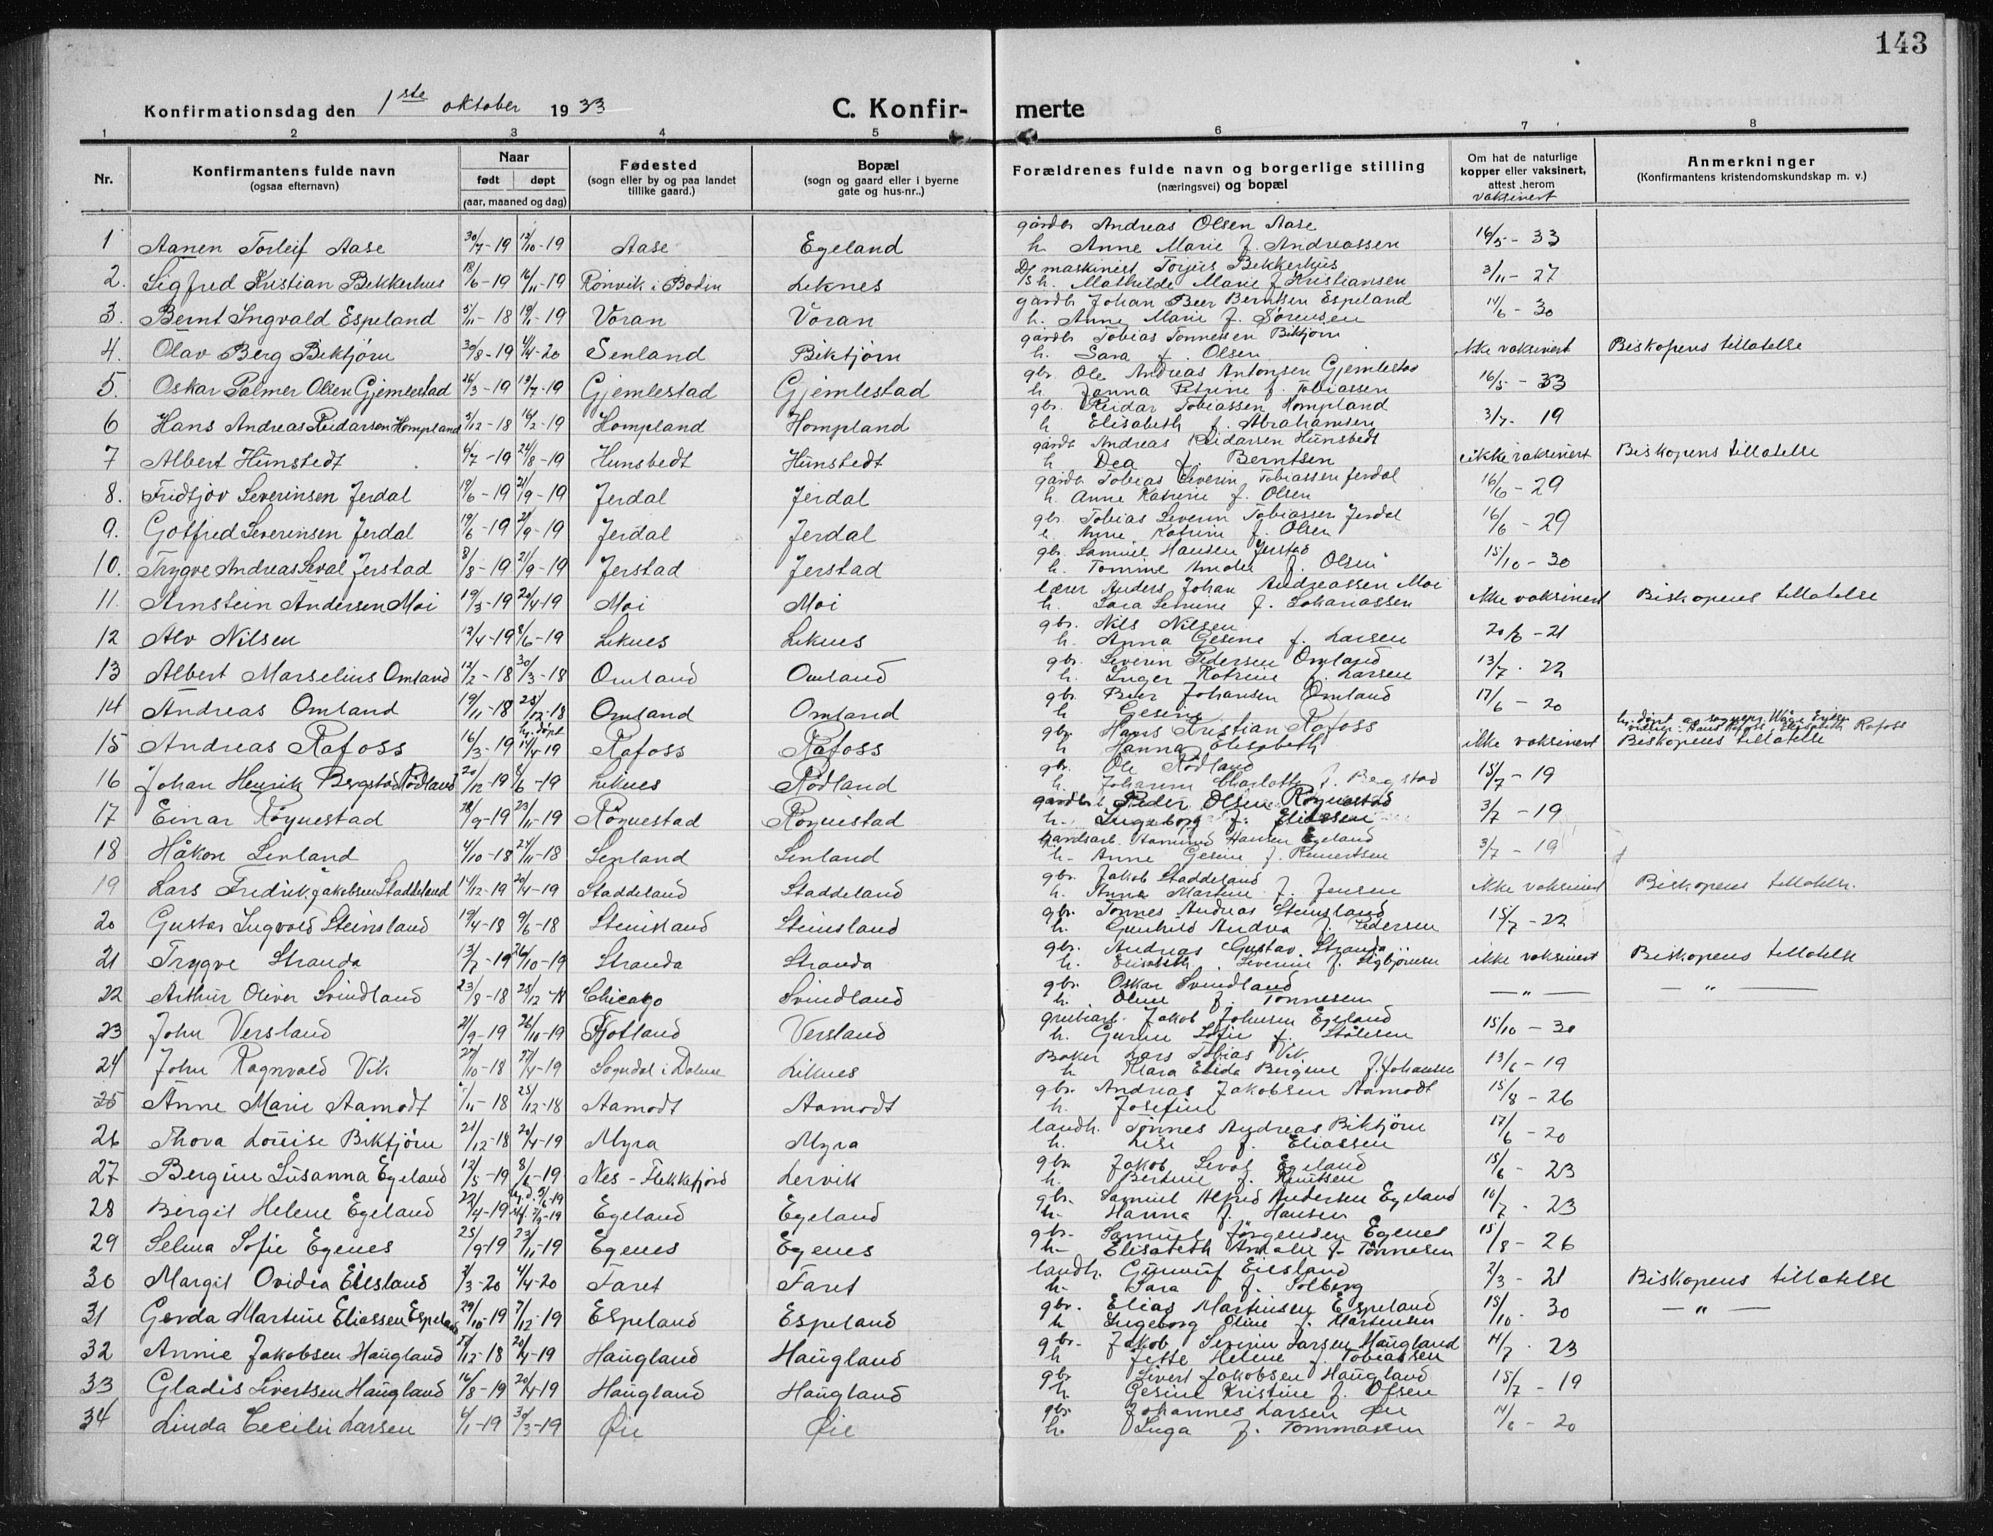 143
Konfirmationsdag den 1ste oktober 1933 C. Konfir- merte
1 2 3 4 5 6 7 8
Nr. Konfirmantens fulde navn (ogsaa efternavn) Naar født døpt (aar, maaned og dag) Fødested (sogn eller by og paa landet tillike gaard.) Bopæl (sogn og gaard eller i byerne gate og hus-nr.) Forældrenes fulde navn og borgerlige stilling (næringsvei) og bopæl Om hat de naturlige kopper eller vaksinert, attest herom vaksinert Anmerkninger (Konfirmantens kristendomskundskap m. v.)
1 Aanen Torleif Aase 30/7-19 12/10-19 Aase Egeland gårdbr. Andreas Olsen Aase 16/5-33
h. Anne Marie f. Andreassen
2. Sigfred Kristian Bekkerhus 18/6-19 16/11-19 Rønvik i Bodin Liknes maskinist Torjus Bekkerhus 3/11-27
h. Mathilde Marie f Kristiansen
3. Bernt Ingvald Espeland 5/11-18 19/1-19 Voran Voran gårdbr. Johan Beer Berntsen Espeland 14/6-30
h. Anne Marie f. Sørensen
4. Olav Berg Biktjørn 30/8-19 4/4-20 Senland Biktjørn gårdbr Tobias Tønnesen Biktjørn ikke vaksinert Biskopens tillatelse
h. Sara f. Olsen
5. Oskar Palmer Olsen Gjemlestad 26/3-19 13/7-19 Gjemlestad Gjemlestad gbr. Ole Andreas Antonsen Gjemlestad 16/5-33
h Janna Petrine f. Tobiassen
6 Hans Andreas Reidarsen Hompland 5/12-18 16/2-19 Hompland Hompland gbr. Reidar Tobiassen Hompland 3/7-19
h Elisabeth f. Abrahamsen
7 Albert Hunstedt 6/7-19 24/8-19 Hunsbedt Hunstedt gårdb Andreas Reidarsen Hunsbedt ikke vaksinert Biskopens tillatelse
h Dea f. Berntsen
8. Fridtjov Severinsen Jerdal 19/6-19 21/9-19 Jerdal Jerdal gårdb Tobias Severin Tobiassen Jerdal 16/6-29
h. Anne Katrine f. Olsen
9. Gotfred Severinsen Jerdal 19/6-19 21/9-19 Jerdal Jerdal gbr. Tobias Severin Tobiassen Jerdal 16/6-29
h. Anne Katrine f. Olsen
10. Trygve Andreas Seval Jerstad 8/8-19 21/9-19 Jerstad Jerstad gbr. Samuel Hansen Jerstad 15/10-30
h. Tomine Amalie f. Olsen
11. Arnstein Andersen Moi 19/3-19 20/4-19 Moi Moi lærer Anders Johan Andreassen Moi ikke vaksinert Biskopens tillatelse
h. Sara f. Johanassen
12 Alv Nilsen 12/4-19 8/6-19 Liknes Liknes gbr. Nils Nilsen 20/6-21
h. Anna Gesine f. Larsen
13 Albert Marselius Omland 12/2-18 30/3-18 Omland Omland gbr. Severin Pedersen Omland 13/7-22
h. Inger Katrine f. Larsen
14 Andreas Omland 19/11-18 25/12-18 Omland Omland gbr. Beer Johansen Omland 17/6-20
h Gesine
15 Andreas Rafoss 16/3-19 hj. døpt 17/4-19 Rafoss Rafoss gbr Hans Kristian Rafoss ikke vaksinert hj. døpt av Rafoss Elisabeth Rafoss
h Hanna Elisabeth Biskopens tillatelse
16 Johan Henrik Bergstad Rødland 20/12-19 8/6-19 Liknes Rødland gbr. Ole Rødland 15/7-19
h. Charlotte f. Bergstad
17 Einar Røynestad 18/9-19 23/11-19 Røynestad Røynestad gårdbr. Peder Olsen Røynestad 3/7-19
h. Ingeborg f. Eliassen
18 Håkon Senland 4/10-18 24/11-18 Senland Senland Hansen Egeland 3/7-19
h. Anne Gesine f. Reinertsen
19 Lars Fredrik Jakobsen Staddeland 14/12-19 20/4-19 Staddeland Staddeland gbr. Jakob Staddeland ikke vaksinert Biskopens tillatelse.
h. Anna Martine f. Jensen
20 Gustav Ingvold Steinsland 19/4-18 9/6-18 Steinsland Steinsland gbr. Tønnes Andreas Steinsland 15/7-22
h. Gunhild Andrea f. Pedersen
21 Trygve Stranda 13/7-19 26/10-19 Stranda Stranda gbr. Andreas Gustav Stranda ikke vaksinert Biskopens tillatelse
h. Elisabeth Severine f. Sigbjørnsen
22 Arthur Oliver Svindland 23/8-18 25/12-18 Chicago Svindland gbr. Oskar Svindland — " — — " —
h. Oline f. Tønnesen
23 John Versland 21/9-19 26/10-19 Fjotland Versland grubearb. Jakob Johnsen Egeland 15/10-30
h. Gurine Sofie f. Stålesen
24 John Ragnvald Vik 27/10-18 27/4-19 Sogndal i Dalene Liknes Baker Lars Tobias Vik 13/6-19
h Klara Elida Bergine f. Johansen
25 Anne Marie Aamodt /11-18 25/12-18 Aamodt Aamodt gbr. Andreas Jakobsen Aamodt 15/8-26
h. Josefine
26 Thora Louise Biktjørn 21/12-18 20/4-19 Myra Myra landh. Tønnes Andreas Biktjørn 17/6-20
h. Lise f. Eliassen
27 Bergine Susanna Egeland 12/5-19 8/6-19 Nes - Flekkefjord Lervik gbr. Jakob Seval Egeland 15/6-23
h. Bertine f. Knutsen
28 Birgit Helene Egeland 22/4-19 hj.d. 5/6-19 Egeland Egeland gbr. Samuel Alfred Andersen Egeland 10/7-23
h. Hanna f. Hansen
29 Selma Sofie Egenes 25/9-19 23/11-19 Egenes Egenes gbr. Samuel Jørgensen Egenes 15/8-26
h. Elisabeth Amalie f. Tønnesen
30 Margit Ovidia Eiesland 3/3-20 4/4-20 Faret Faret landh. Gunnuf Eiesland 2/3-21 Biskopens tillatelse
h. Sara f. Solberg
31 Gerda Martine Eliassen Espeland 29/10-19 7/12-19 Espeland Espeland gbr. Elias Martinsen Espeland 15/10-30 — " —
h Ingeborg Oline f. Mortensen
32 Annie Jakobsen Haugland /12-18 20/4-19 Haugland Haugland gbr. Jakob Severin Larsen Haugland 14/7-23
h Jette Helene f. Tobiassen
33 Gladis Sivertsen Haugland 16/8-19 20/4-19 Haugland Haugland gbr Sivert Jakobsen Haugland 15/7-19
h. Gesine Kristine f. Olsen
34 Linda Cecilie Larsen 6/1-19 30/3-19 Øie Øie gbr. Johannes Larsen Øie 14/6-20
h. Inga f. Tommassen